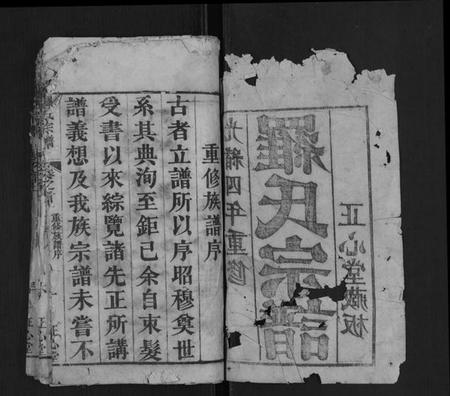 光緒四年重修
羅氏宗譜
正心堂藏板
重修族譜序
古者立譜所以序昭穆奠世
系其典洵至鉅已余自束髮
受書以來綜覽諸先正所講
譜義想及我族宗譜未嘗不
宗譜
重修族譜序
正心堂